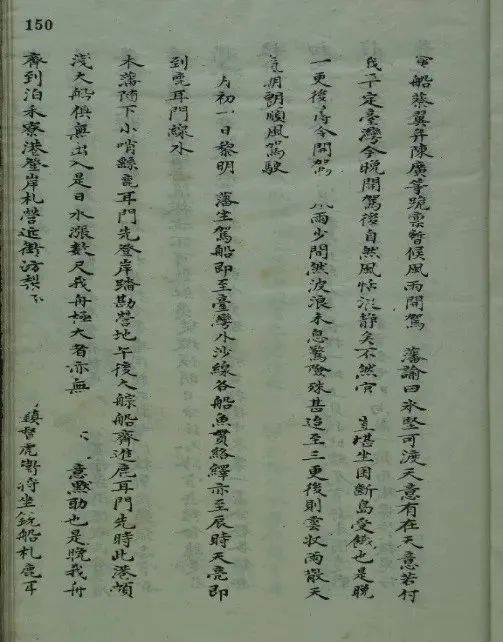 船蔡翼并陳廣等跪稟暫候風雨開駕　藩諭曰氷堅可渡天意有在天意若付
我平定臺灣今晚開駕後自然風恬浪静矣不然官　豈堪坐困斷島受餓也是晚
一更後傳令開駕　風雨少間然波浪未息驚險殊甚迨至三更後則雲收雨散天
氣明朗順風駕駛
月初一日黎明　藩坐駕船即至臺灣外沙線各船魚貫絡繹亦至辰時天亮即
到鹿耳門線外
本藩隨下小哨繇鹿耳門先登岸踏勘營地午後大䑸船齊進鹿耳門先時此港頗
淺大船俱無出入是日水漲數尺我舟極大者亦無　意默助也是晚我舟
齊到泊禾寮港登岸札營近街坊梨　鎮督虎衛將坐銃船札鹿耳
150